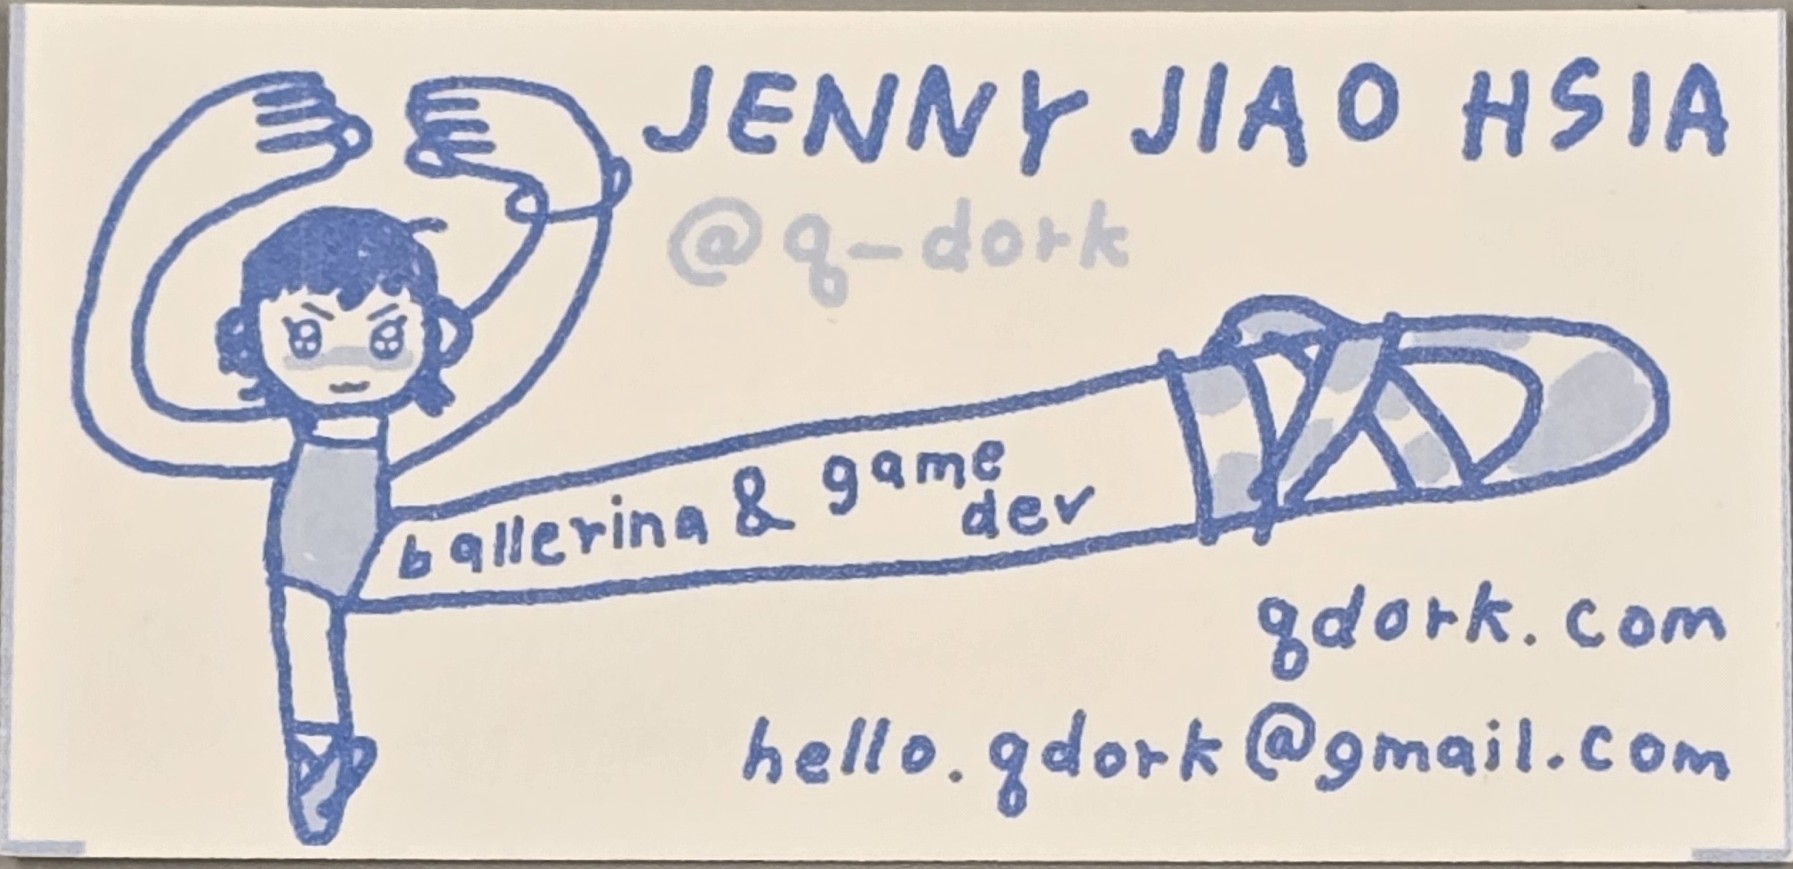 JENNY JIAO HSIA
@q_dork
ballerina & game
dev
qdork.com
hello.qdork@gmail.com